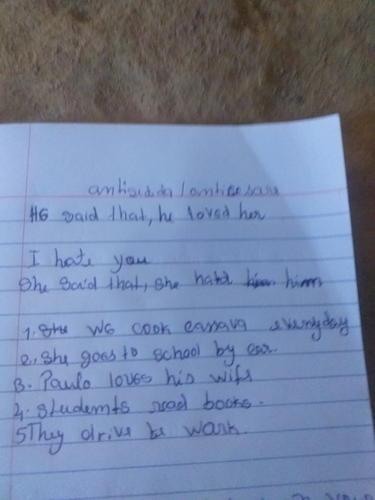 He said that, he loved her
I hate you
She said that, she hated him
1. We cook cassava everyday
2. She goes to school by car.
3. Paulo loves his wife
4. Students read books.
5 They drive be work.